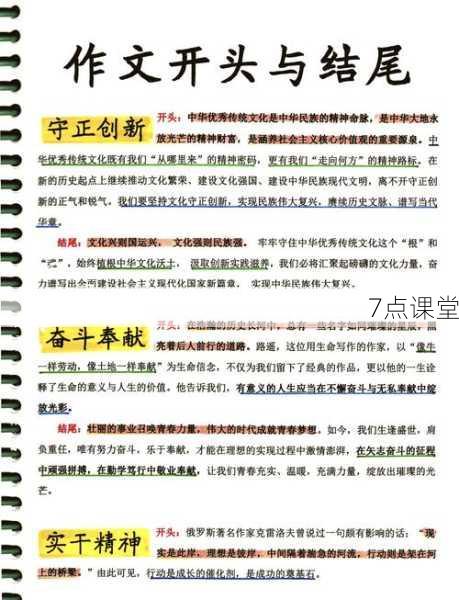 作文开头与结尾
守正创新
开头：中华优秀传统文化是中华民族的精神命脉，是中华大地永
放光芒的精神财富，是涵养社会主义核心价值观的重要源泉。中
华优秀传统文化既有我们“从哪里来”的精神密码，更有我们“走向何方”的精神路标。在
新的历史起点上继续推动文化繁荣、建设文化强国、建设中华民族现代文明，离不开守正创
新的正气和锐气。我们要坚持文化守正创新，实现民族伟大复兴，赓续历史文脉、谱写当代
华章。
结尾：文化兴则国运兴，文化强则民族强。牢牢守住中华优秀传统文化这个“根”和
“魂”，始终植根中华文化沃土，汲取创新实践滋养，我们必将汇聚起磅礴的文化力量，奋
力谱写出全面建设社会主义现代化国家新篇章，实现中华民族伟大复兴。
7点课堂
奋斗奉献
开头：在浩瀚的历史长河中，总有一些名字如同璀璨的星辰，照
亮着后人前行的道路。路遥，这位用生命写作的作家，以“像牛
一样劳动，像土地一样奉献”为生命信念，不仅为我们留下了经典的作品，更以他的一生诠
释了生命的意义与人生的价值。他告诉我们，有意义的人生应当在不懈奋斗与无私奉献中绽
放光彩。
结尾：壮丽的事业召唤青春力量，伟大的时代成就青春梦想。如今，我们生逢盛世，肩
负重任，唯有努力奋斗，乐于奉献，才能在理想的实现过程中激情澎湃，在矢志奋斗的征程
中顽强拼搏，在勤学笃行中敬业奉献，让我们青春充实、温暖，充满力量，绽放出璀璨的光
芒。
实干精神
开头：俄罗斯著名作家克雷洛夫曾说过一句颇有影响的话：“现
实是此岸，理想是彼岸，中间隔着湍急的河流，行动则是架在河
上的桥梁。”由此可见，行动是成长的催化剂，是成功的奠基石。